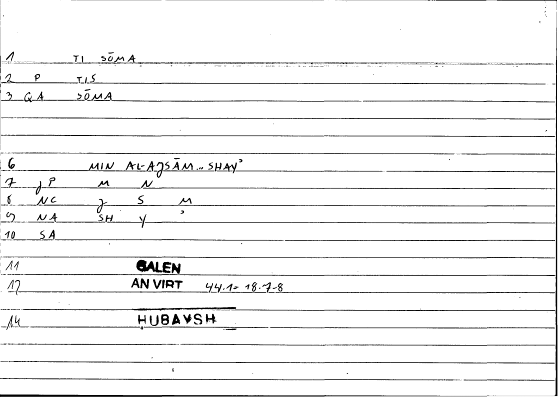 1 TI SŌMA
2 P TIS
3 QA SŌMA
6 MIN AL-AJSĀM.. SHAYʾ
7 JP M N
8 NC J S M
9 NA SH Y ʾ
10 SA
11 GALEN
12 AN VIRT 44.1 = 18.7-8
14 HUBAYSH